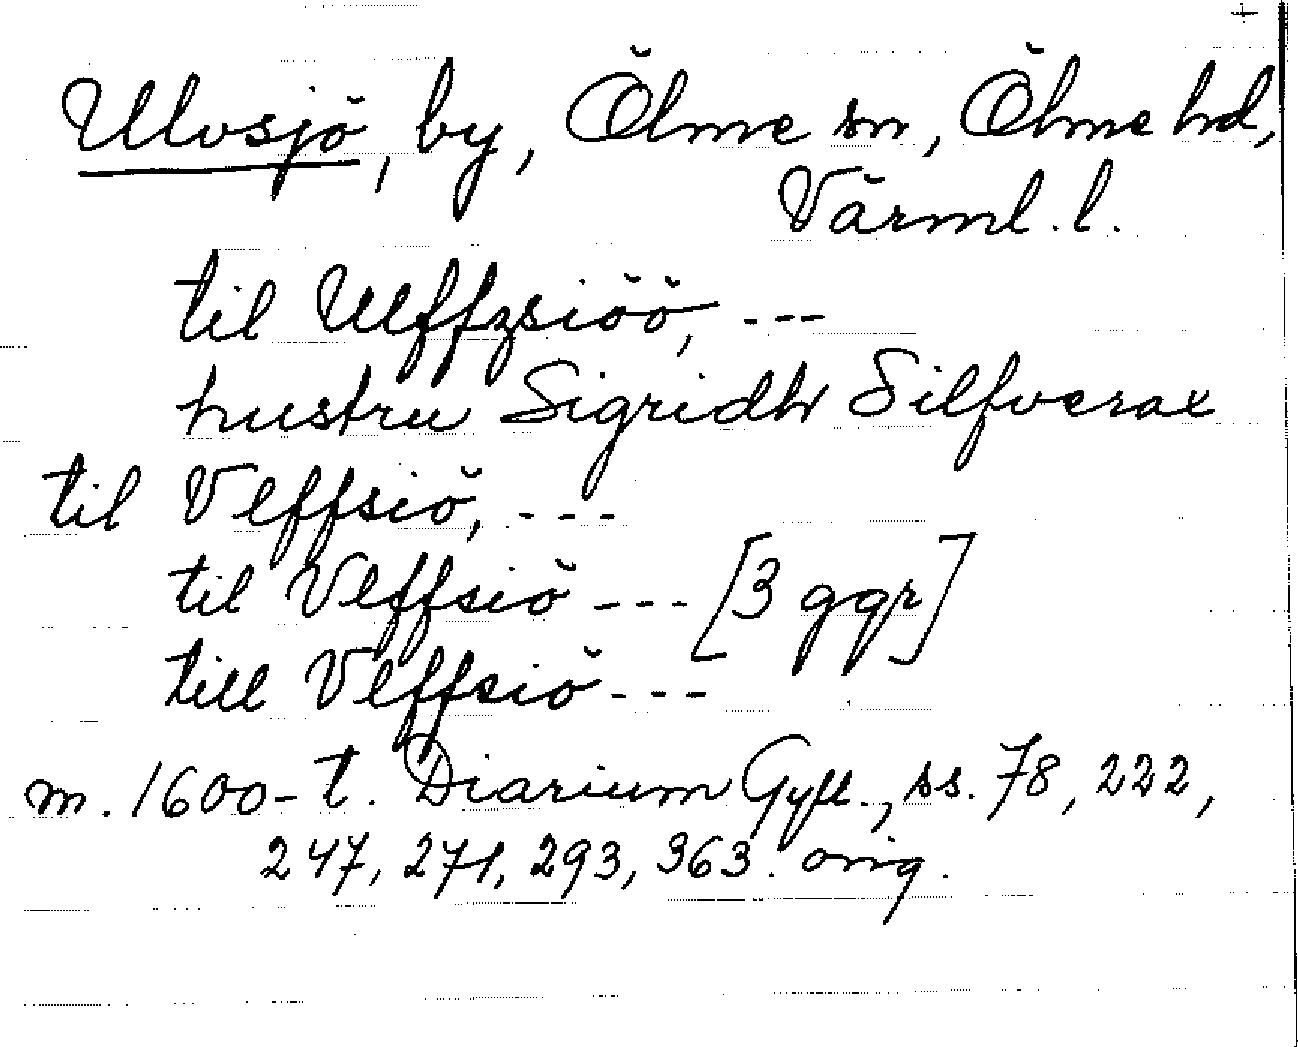 Ulvsjö, by, Ölme sn, Ölme hd,
Värml. l.
til Ulffzsiöö, ---
hustru Sigridh Silfverax
til Vlffsiö, ---
til Vlffsiö --- [3 ggr]
till Vlffsiö ---
m. 1600-t. Diarium Gyll., ss. 78, 222,
247, 271, 293, 363. orig.